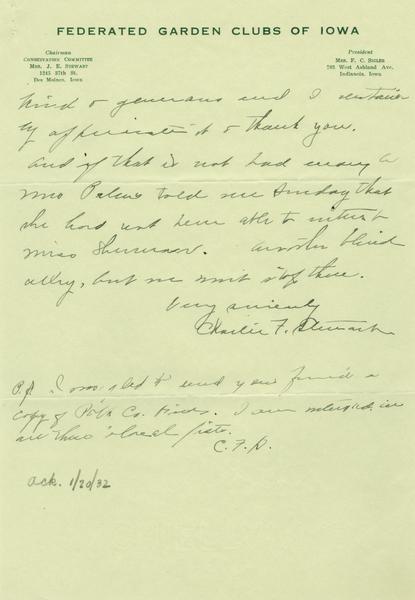 FEDERATED GARDEN CLUBS OF IOWA
Chairman
CONSERVATION COMMITTEE
MRS. J. E. STEWART
1245 37th St.
Des Moines, Iowa
President
MRS. F. C. SIGLER
705 West Ashland Ave.
Indianola, Iowa
kind & generous and I
appreciate it & thank you.
and if that is not bad enough
told me Sunday that
she had not been able to
Miss. another blind
alley, but we wont stop there.
Very sincerely
Charlie F. Stewart
P.S. I am glad to send your friend a
copy of Polk Co. I am interested in
all these local lists.
C. F. S.
ack. 1/20/32